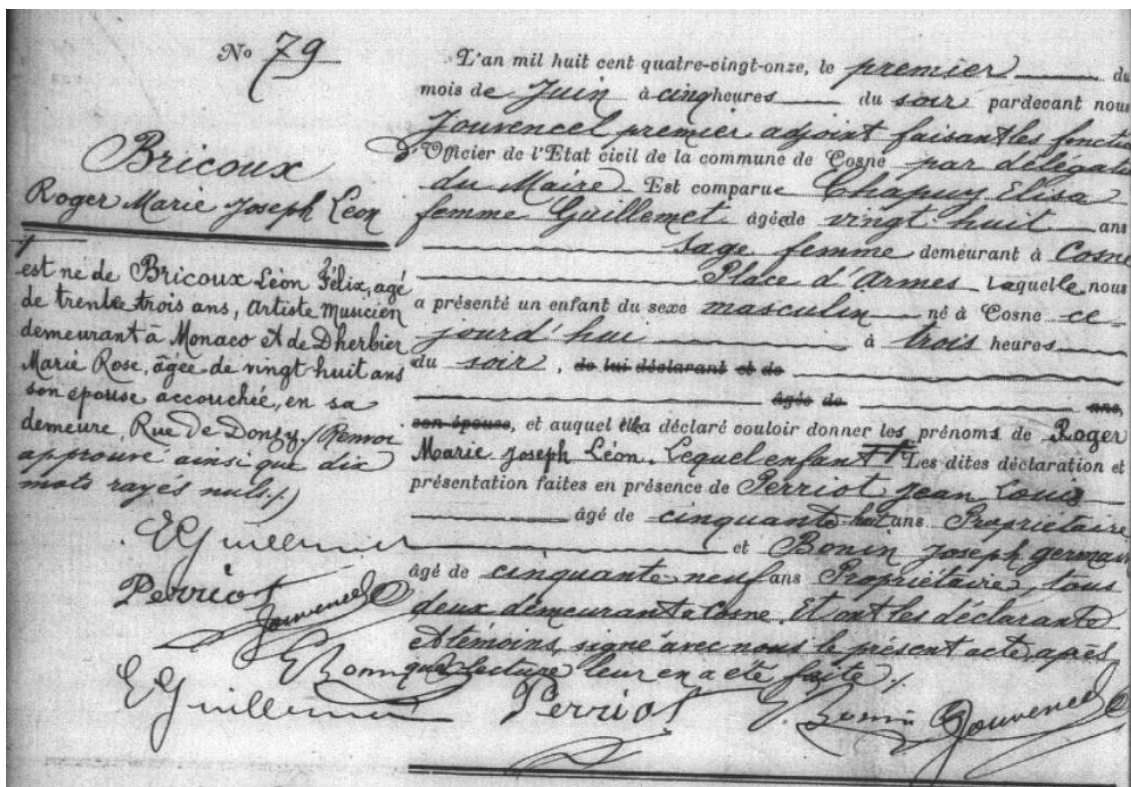 No 79
Bricoux
Roger Marie Joseph Léon
est né de Bricoux Léon Félix, agé
de trente trois ans, Artiste Musicien
demeurant à Monaco et de Dherbier
Marie Rose, âgée de vingt huit ans
son épouse accouchée, en sa
demeure, Rue de Donzy ./. Renvoi
approuvé ainsi que dix
mots rayés nuls ./.)
EGuillemet
Perriot
Jouvencel
Bonin
EGuillemet
L'an mil huit cent quatre-vingt-onze, le premier du
mois de Juin à cinq heures du soir pardevant nous
Jouvencel premier adjoint faisant les fonctions
d'Officier de l'Etat civil de la commune de Cosne par délégation
du Maire Est comparue Chapuy Elisa
femme Guillemet âgée de vingt huit ans
sage femme demeurant à Cosne
Place d'Armes Laquelle nous
a présenté un enfant du sexe masculin né à Cosne ce
jourd'hui à trois heures
du soir, de lui déclarant et de
âgée de ans,
son épouse, et auquel elle a déclaré vouloir donner les prénoms de Roger
Marie Joseph Léon. Lequel enfant Les dites déclaration et
présentation faites en présence de Perriot Jean Louis
âgé de cinquante huit ans Propriétaire
et Bonin Joseph germain
âgé de cinquante neuf ans Propriétaire, tous
deux demeurant à Cosne. Et ont les déclarante
et témoins, signé avec nous le présent acte, après
que lecture leur en a été faite ./.
Perriot Bonin Jouvencel